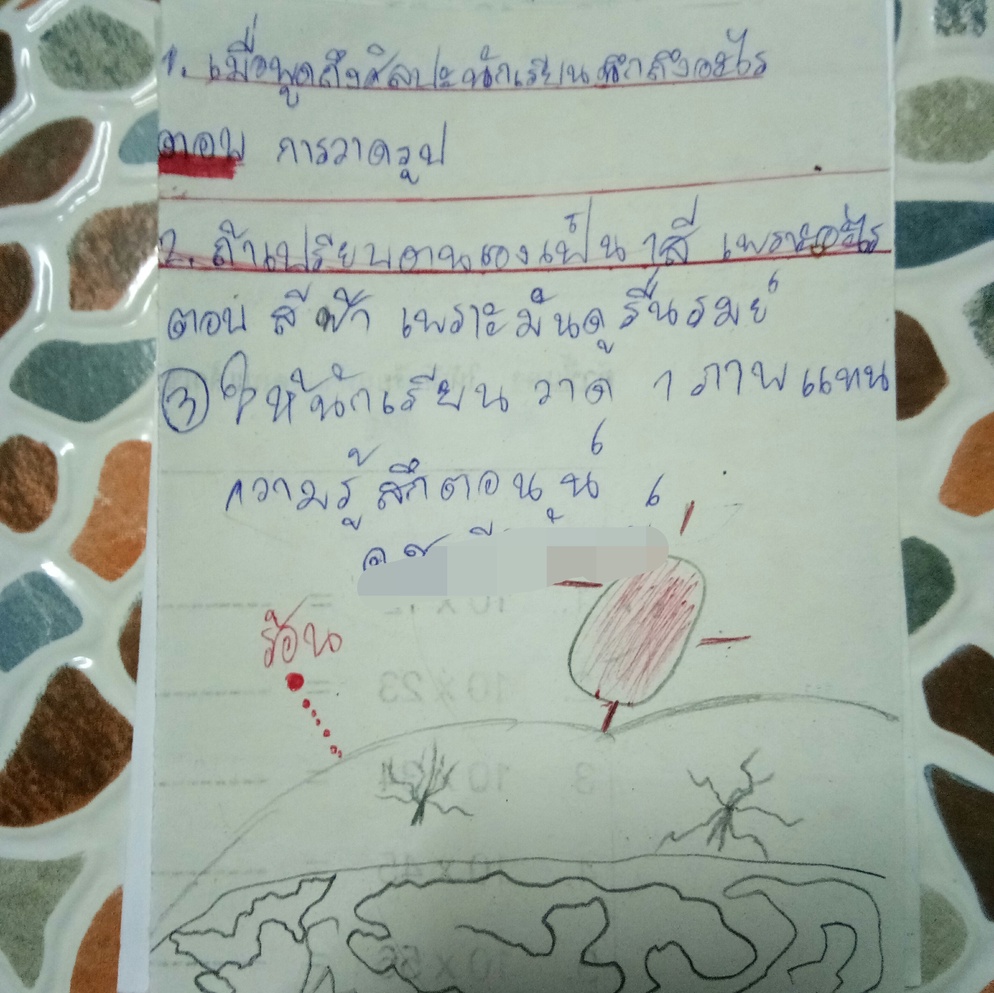 1. เมื่อพูดถึงศิลปะนักเรียนนึกถึงอะไร
ตอบ การวาดรูป
2. ถ้าเปรียบตนเองเป็น 1 สี เพราะอะไร
ตอบ สีฟ้า เพราะมันดูรื่นรมย์
3 ให้นักเรียน วาด 1 ภาพแทน
ความรู้สึกตอนนี้
ร้อน
10 X 12 =
10 X 23 =
3 10 X 24
10 X 45
10 X 56